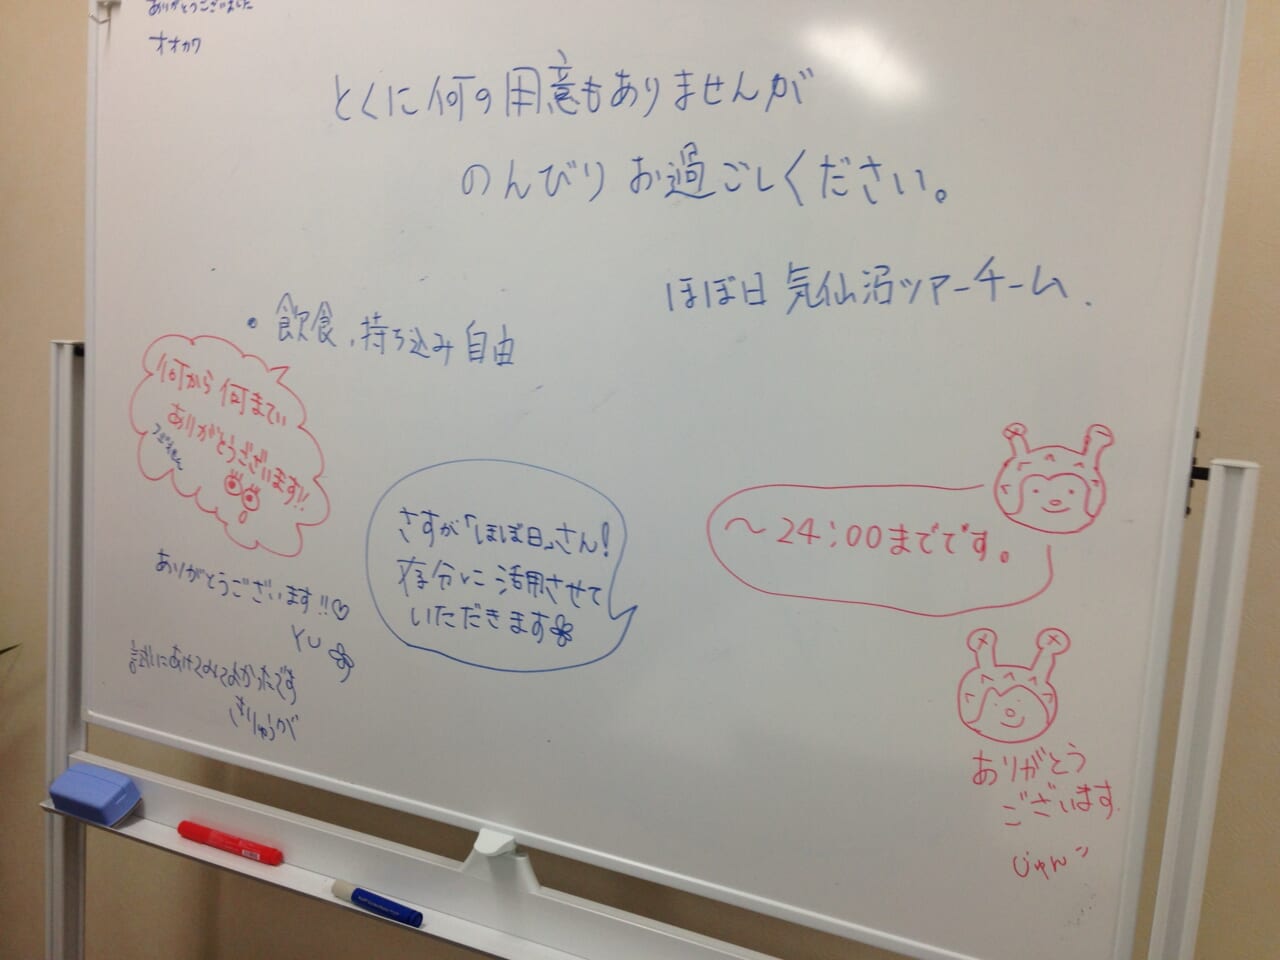 ありがとうございました
オオカワ
とくに何の用意もありませんが
のんびりお過ごしください。
ほぼ日 気仙沼ツアーチーム.
・飲食、持ち込み自由
何から何まで
ありがとうございます!!
さすが「ほぼ日」さん!
存分に活用させて
いただきます
～24:00までです。
ありがとうございます!!♡
YU
試しにあけてみてよかったです
きりゅうが
ありがとう
ございます.
じゅん